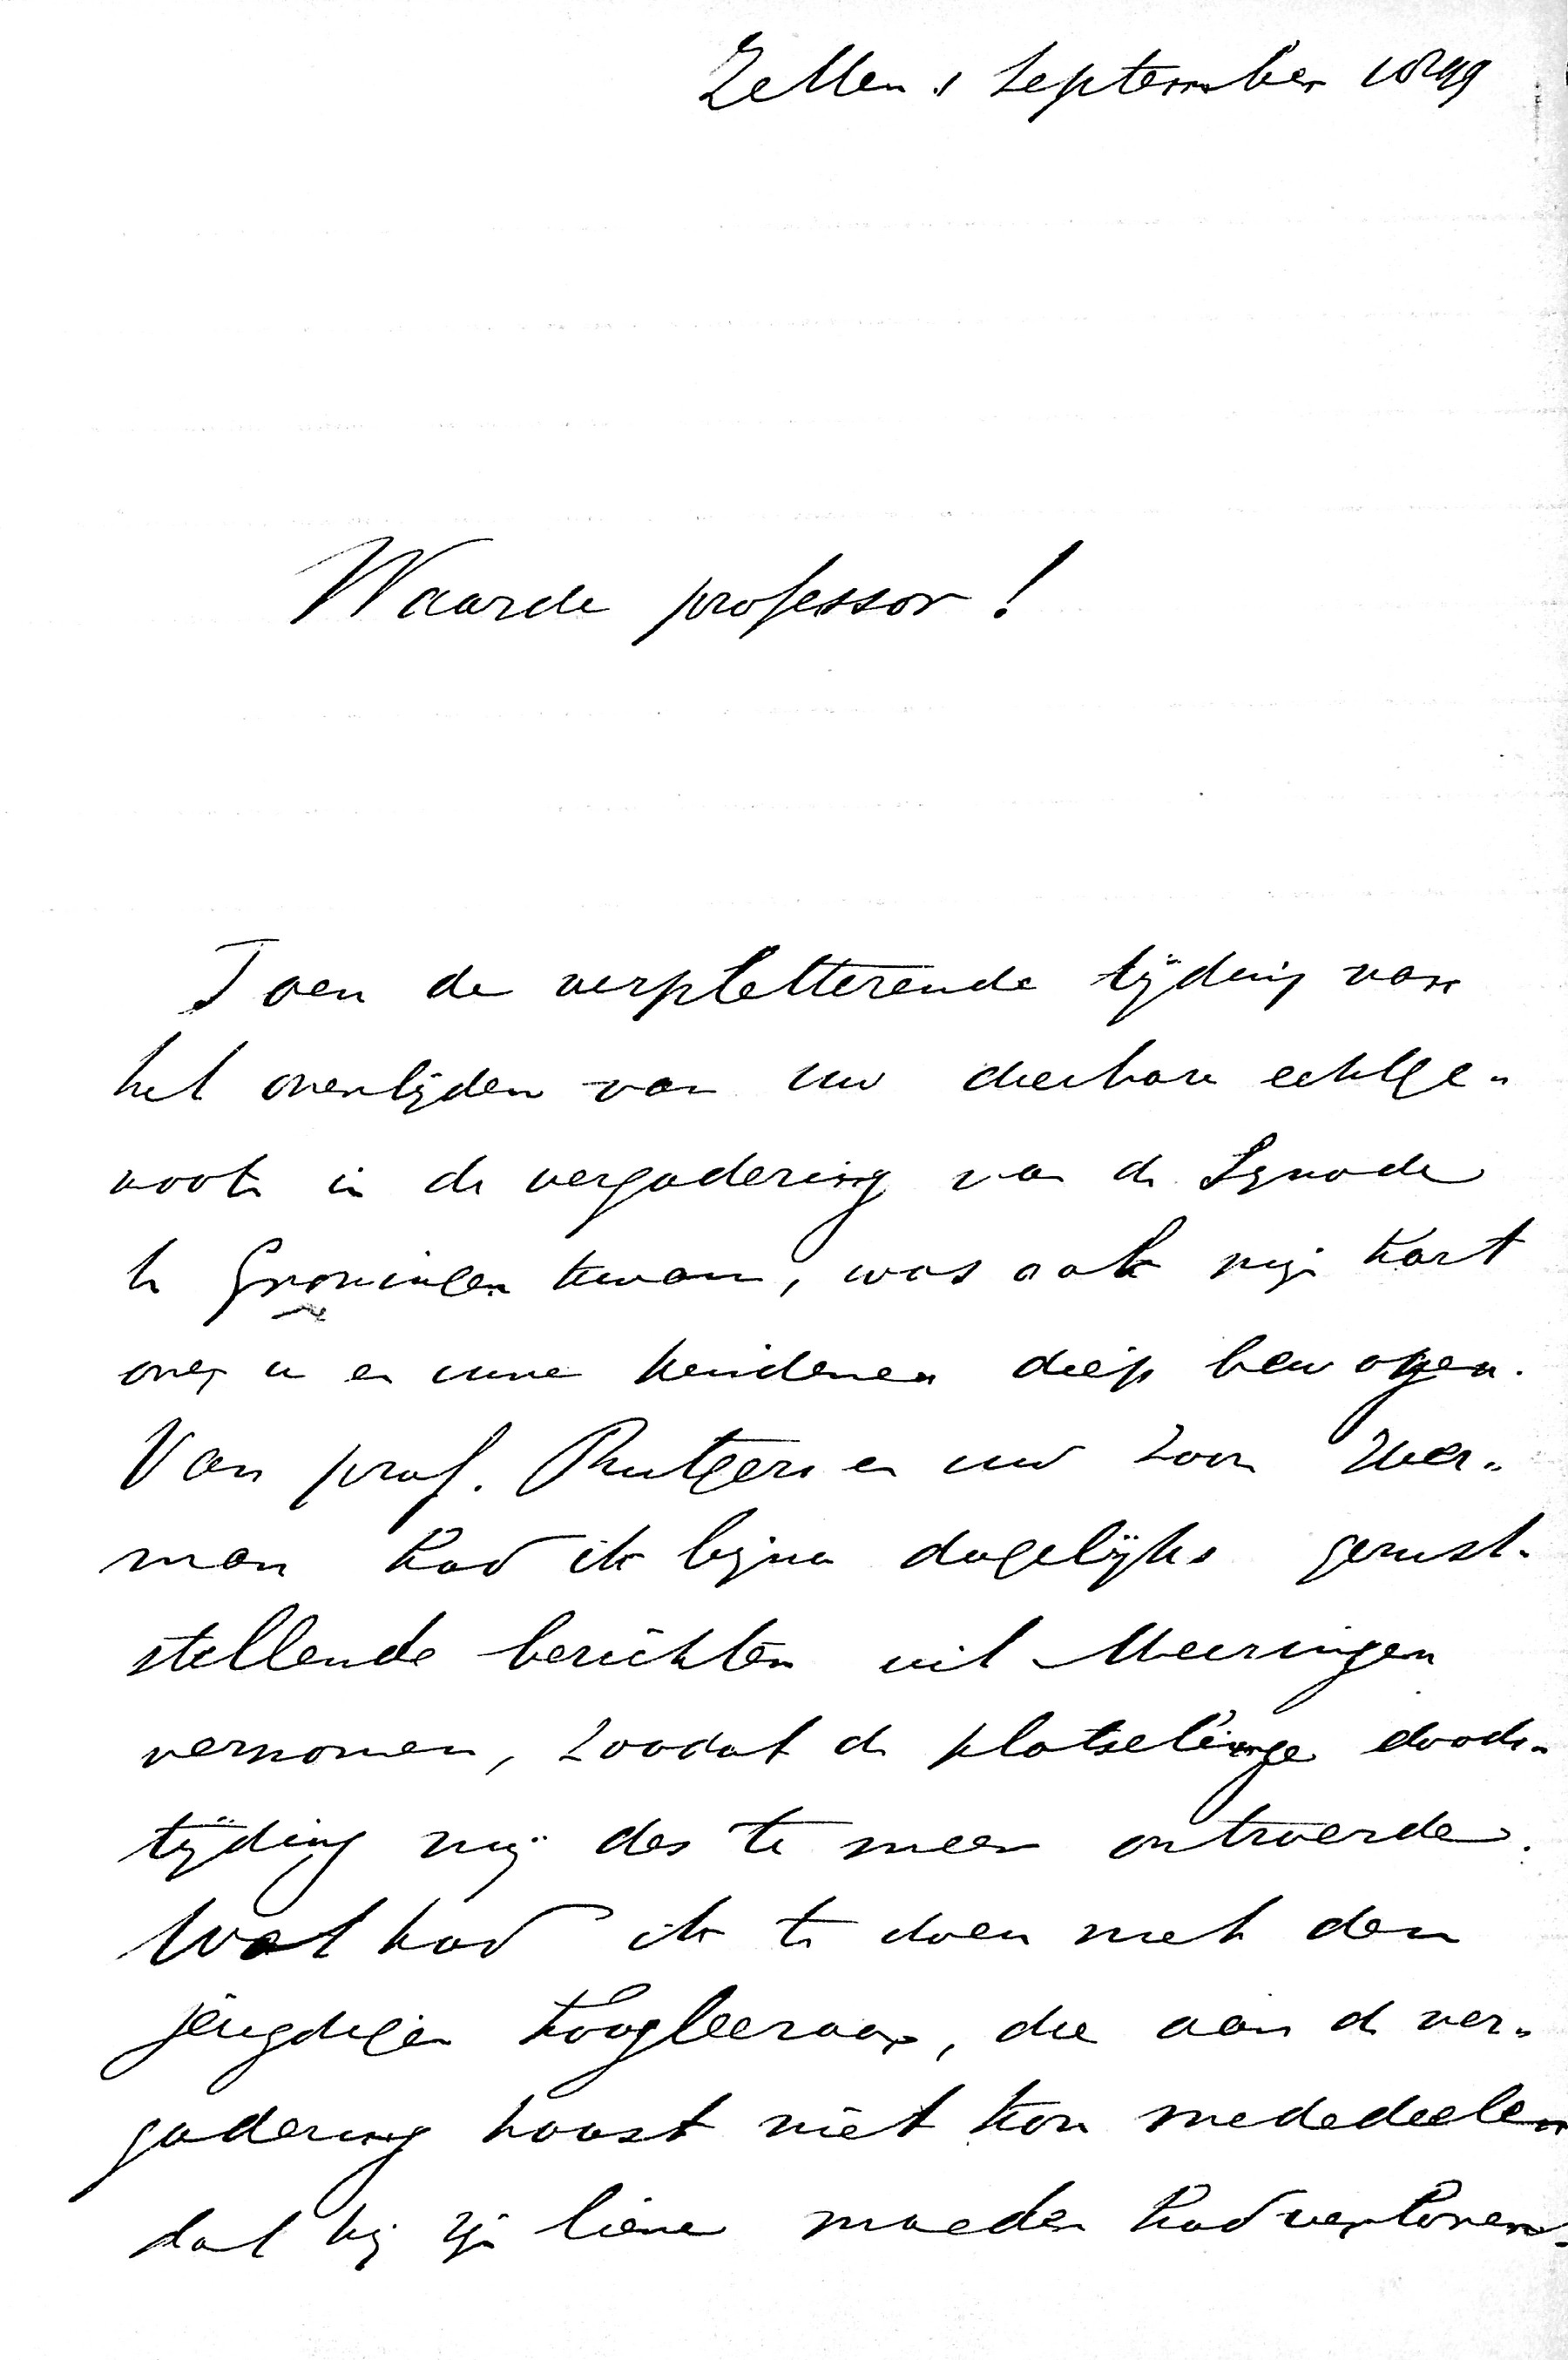 Zetten 1 September 1899
Waarde professor!
Toen de verpletterende tijding van
het overlijden van uw dierbare echtge-
noote in de vergadering van de Synode
te Groningen kwam, was ook mijn hart
over u en uwe kinderen diep bewogen.
Van prof. Rutgers en uw zoon Her-
man had ik bijna dagelijks gerust-
stellende berichten uit Meiringen
vernomen, zoodat de plotselinge doods-
tijding mij des te meer ontroerde.
Wat had ik te doen met den
jeugdigen hoogleeraar, die aan de ver-
gadering haast niet kon mededeelen
dat hij zijn lieve moeder had verloren.